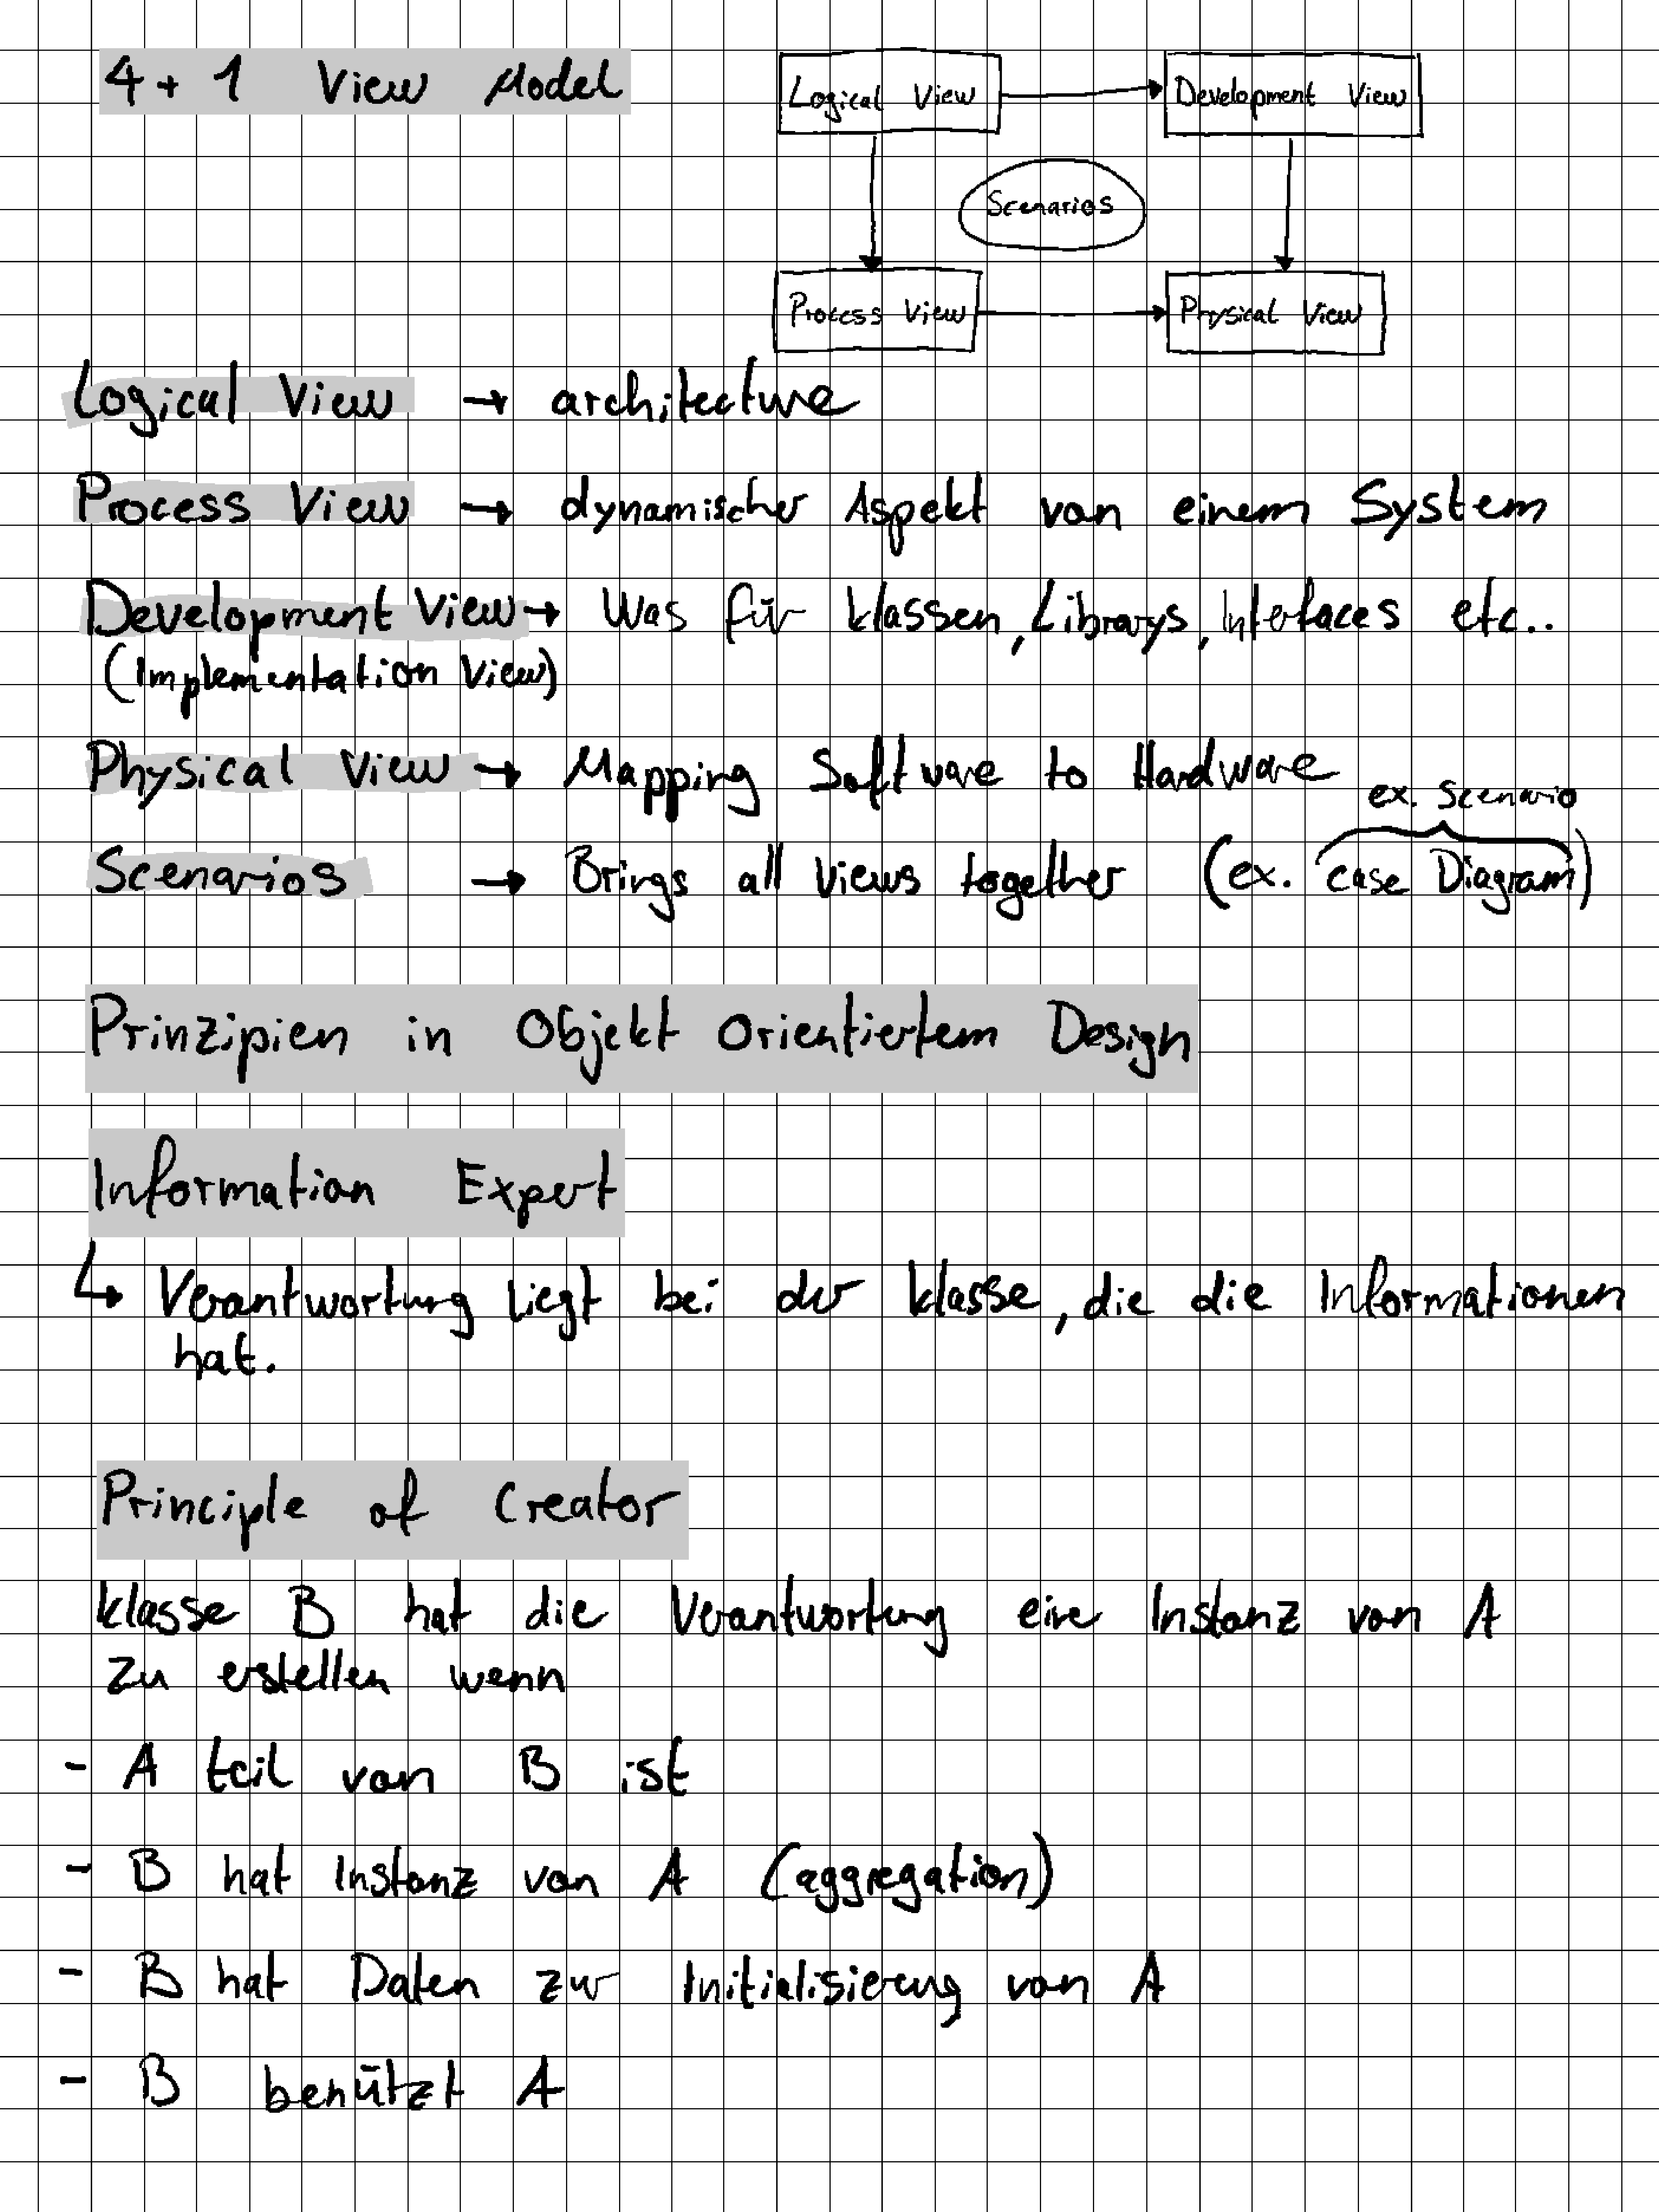 4 + 1 View Model
Logical View
Development View
Scenarios
Process View
Physical View
Logical View → architecture
Process View → dynamischer Aspekt von einem System
Development View → Was für Klassen, Librarys, Interfaces etc..
(Implementation View)
Physical View → Mapping Software to Hardware
ex. Scenario
Scenarios → Brings all views together (ex. case Diagram)
Prinzipien in Objekt Orientiertem Design
Information Expert
↳ Verantwortung liegt bei der Klasse, die die Informationen
hat.
Principle of Creator
Klasse B hat die Verantwortung eine Instanz von A
zu erstellen wenn
- A teil von B ist
- B hat Instanz von A (aggregation)
- B hat Daten zur Initialisierung von A
- B benützt A